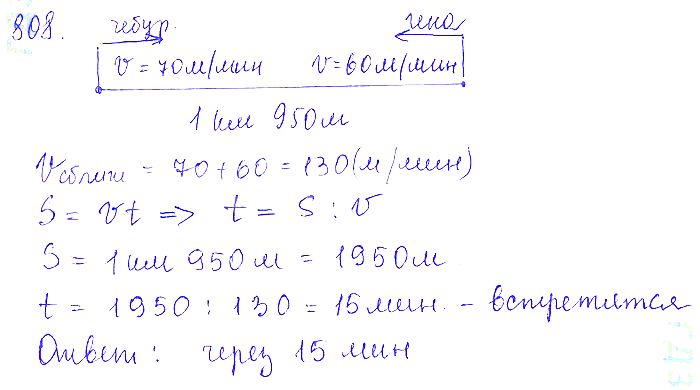 808. чебур. гена
v = 70м/мин v = 60м/мин
1 км 950м
Vсближ = 70 + 60 = 130(м/мин)
S = vt => t = S : v
S = 1 км 950м = 1950м
t = 1950 : 130 = 15мин. - встретятся
Ответ: через 15 мин